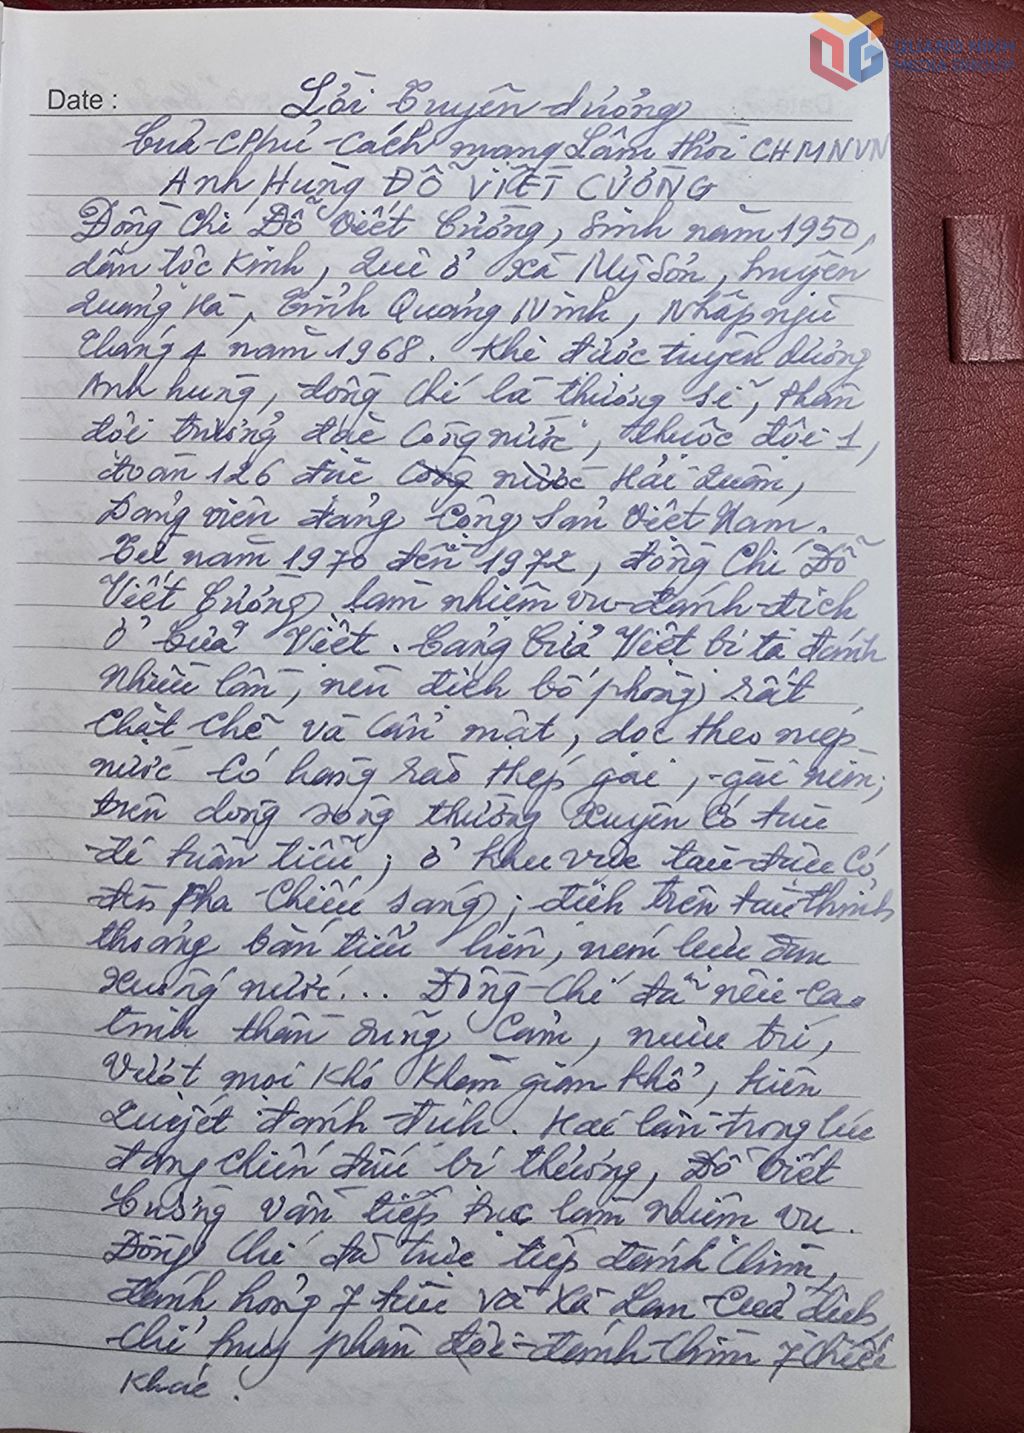 QUANG NINH
MEDIA GROUP
Date :
Lời tuyên dương
Của Cphủ Cách mạng Lâm thời CHMNVN
Anh Hùng ĐỖ VIẾT CƯỜNG
Đồng Chí Đỗ Viết Cường, Sinh năm 1950,
dân tộc Kinh, Quê ở xã Mỹ Sơn, huyện
Quảng Hà, Tỉnh Quảng Ninh, Nhập ngũ
tháng 4 năm 1968. Khi được tuyên dương
Anh hùng, đồng chí là thượng sĩ, Phân
đội trưởng đặc công nước, thuộc đội 1,
đoàn 126 đặc công nước Hải Quân,
Đảng viên đảng Cộng Sản Việt Nam.
Từ năm 1970 đến 1972, đồng Chí Đỗ
Viết Cường làm nhiệm vụ đánh địch
ở Cửa Việt. Cảng Cửa Việt bị ta đánh
nhiều lần, nên địch bố phòng rất
chặt chẽ và cẩn mật, dọc theo mép
nước có hàng rào thép gai, gài mìn;
trên dòng sông thường xuyên có tàu
đi tuần tiễu; ở khu vực tàu đậu có
đèn pha chiếu sáng; địch trên tàu thỉnh
thoảng bắn tiểu liên, ném lựu đạn
xuống nước... Đồng Chí đã nêu cao
tinh thần dũng cảm, mưu trí,
vượt mọi khó khăn gian khổ, kiên
quyết đánh địch. Hai lần trong lúc
đang chiến đấu bị thương, Đỗ Viết
Cường vẫn tiếp tục làm nhiệm vụ.
Đồng Chí đã trực tiếp đánh chìm,
đánh hỏng 7 tàu và xà lan của địch,
chỉ huy phân đội đánh chìm 7 chiếc
khác.